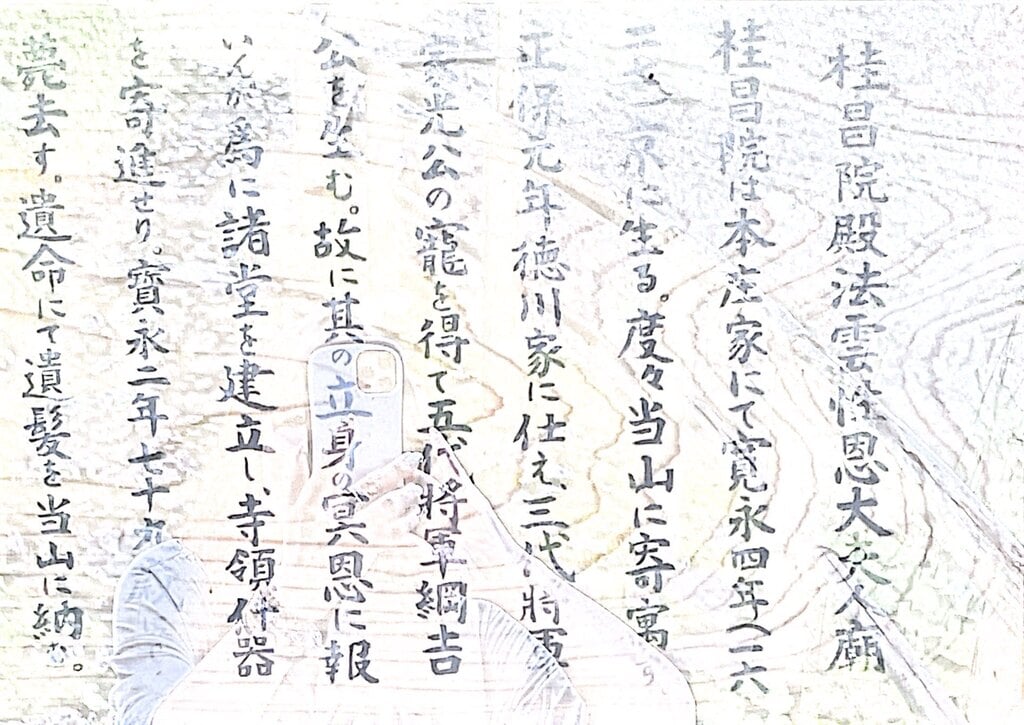 桂昌院殿法雲性恩大夫人廟
桂昌院は本庄家にて寛永四年へ一六
二七京に生る。度々当山に寄寓
正保元年徳川家に仕え、三代將軍
家光公の寵を得て五代將軍綱吉
公を生む。故に其の立身の冥恩に報
いんが爲に諸堂を建立し、寺領什器
を寄進せり。寶永二年七十九
薨去す。遺命にて遺髪を当山に納む。